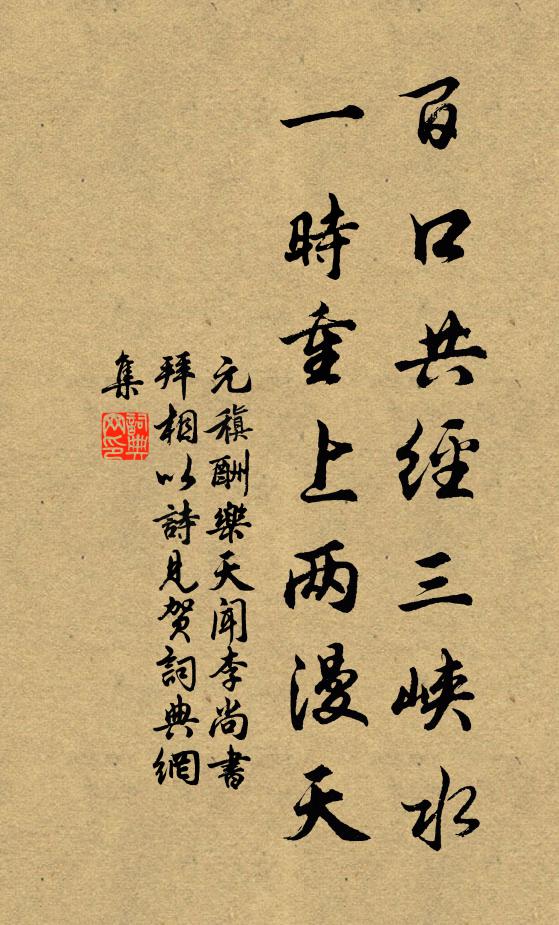 百口共經三峽水
一時重上兩漫天
元稹酬樂天聞李尚書
拜相以詩見賀詞典網
集
詞典網印